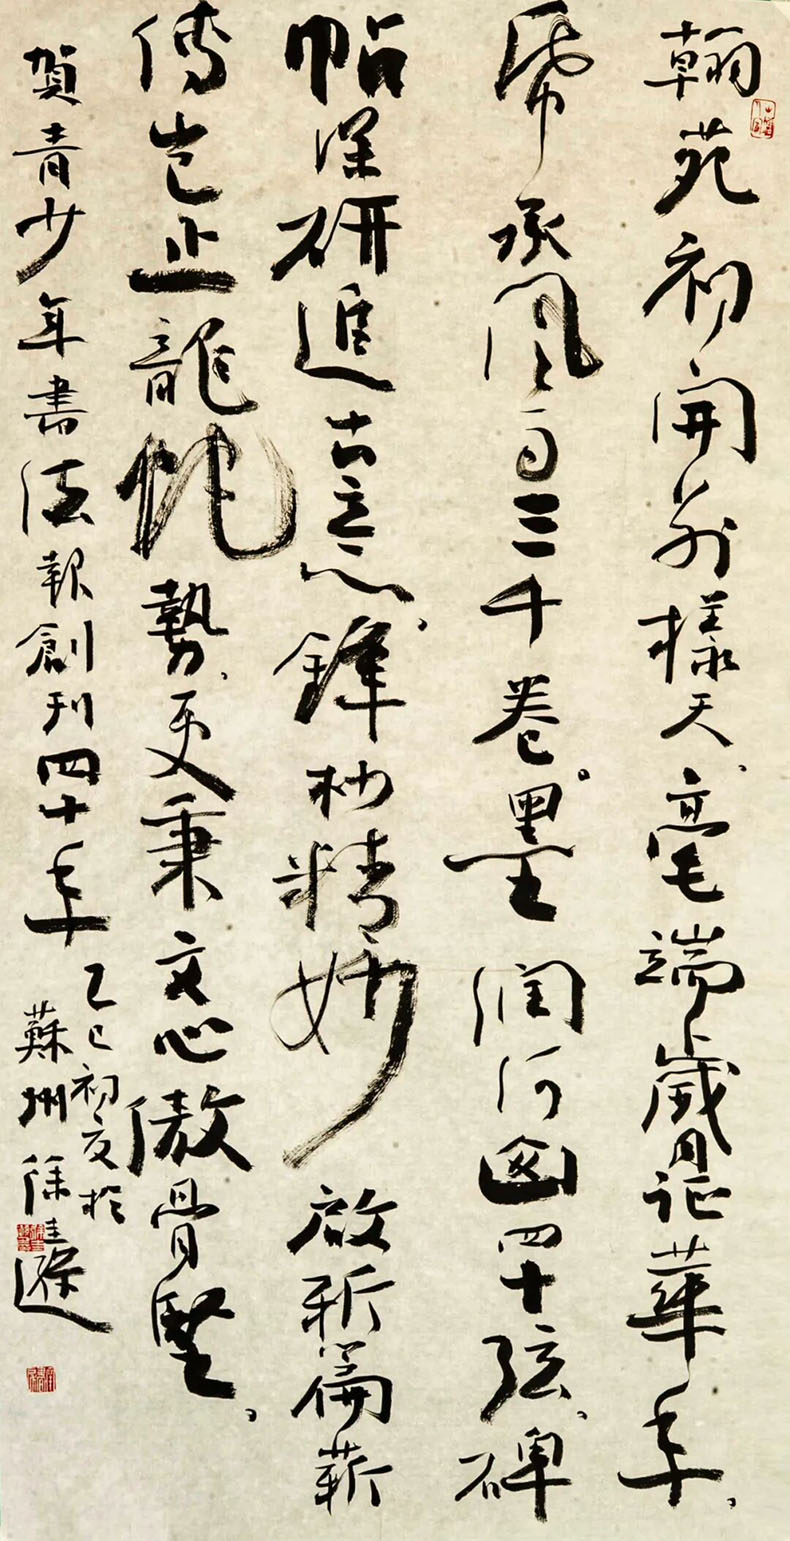 翰苑初開別樣天、毫端歲月証華年，
帋承風三千卷。墨潤河四十弦、碑
帖深研追古意，鋒杪精妙啟新篇薪
傳豈止龍蛇勢、更秉文心傲骨堅，
賀青少年書法報創刊四十年
乙巳初夏於
蘇州徐圭遜